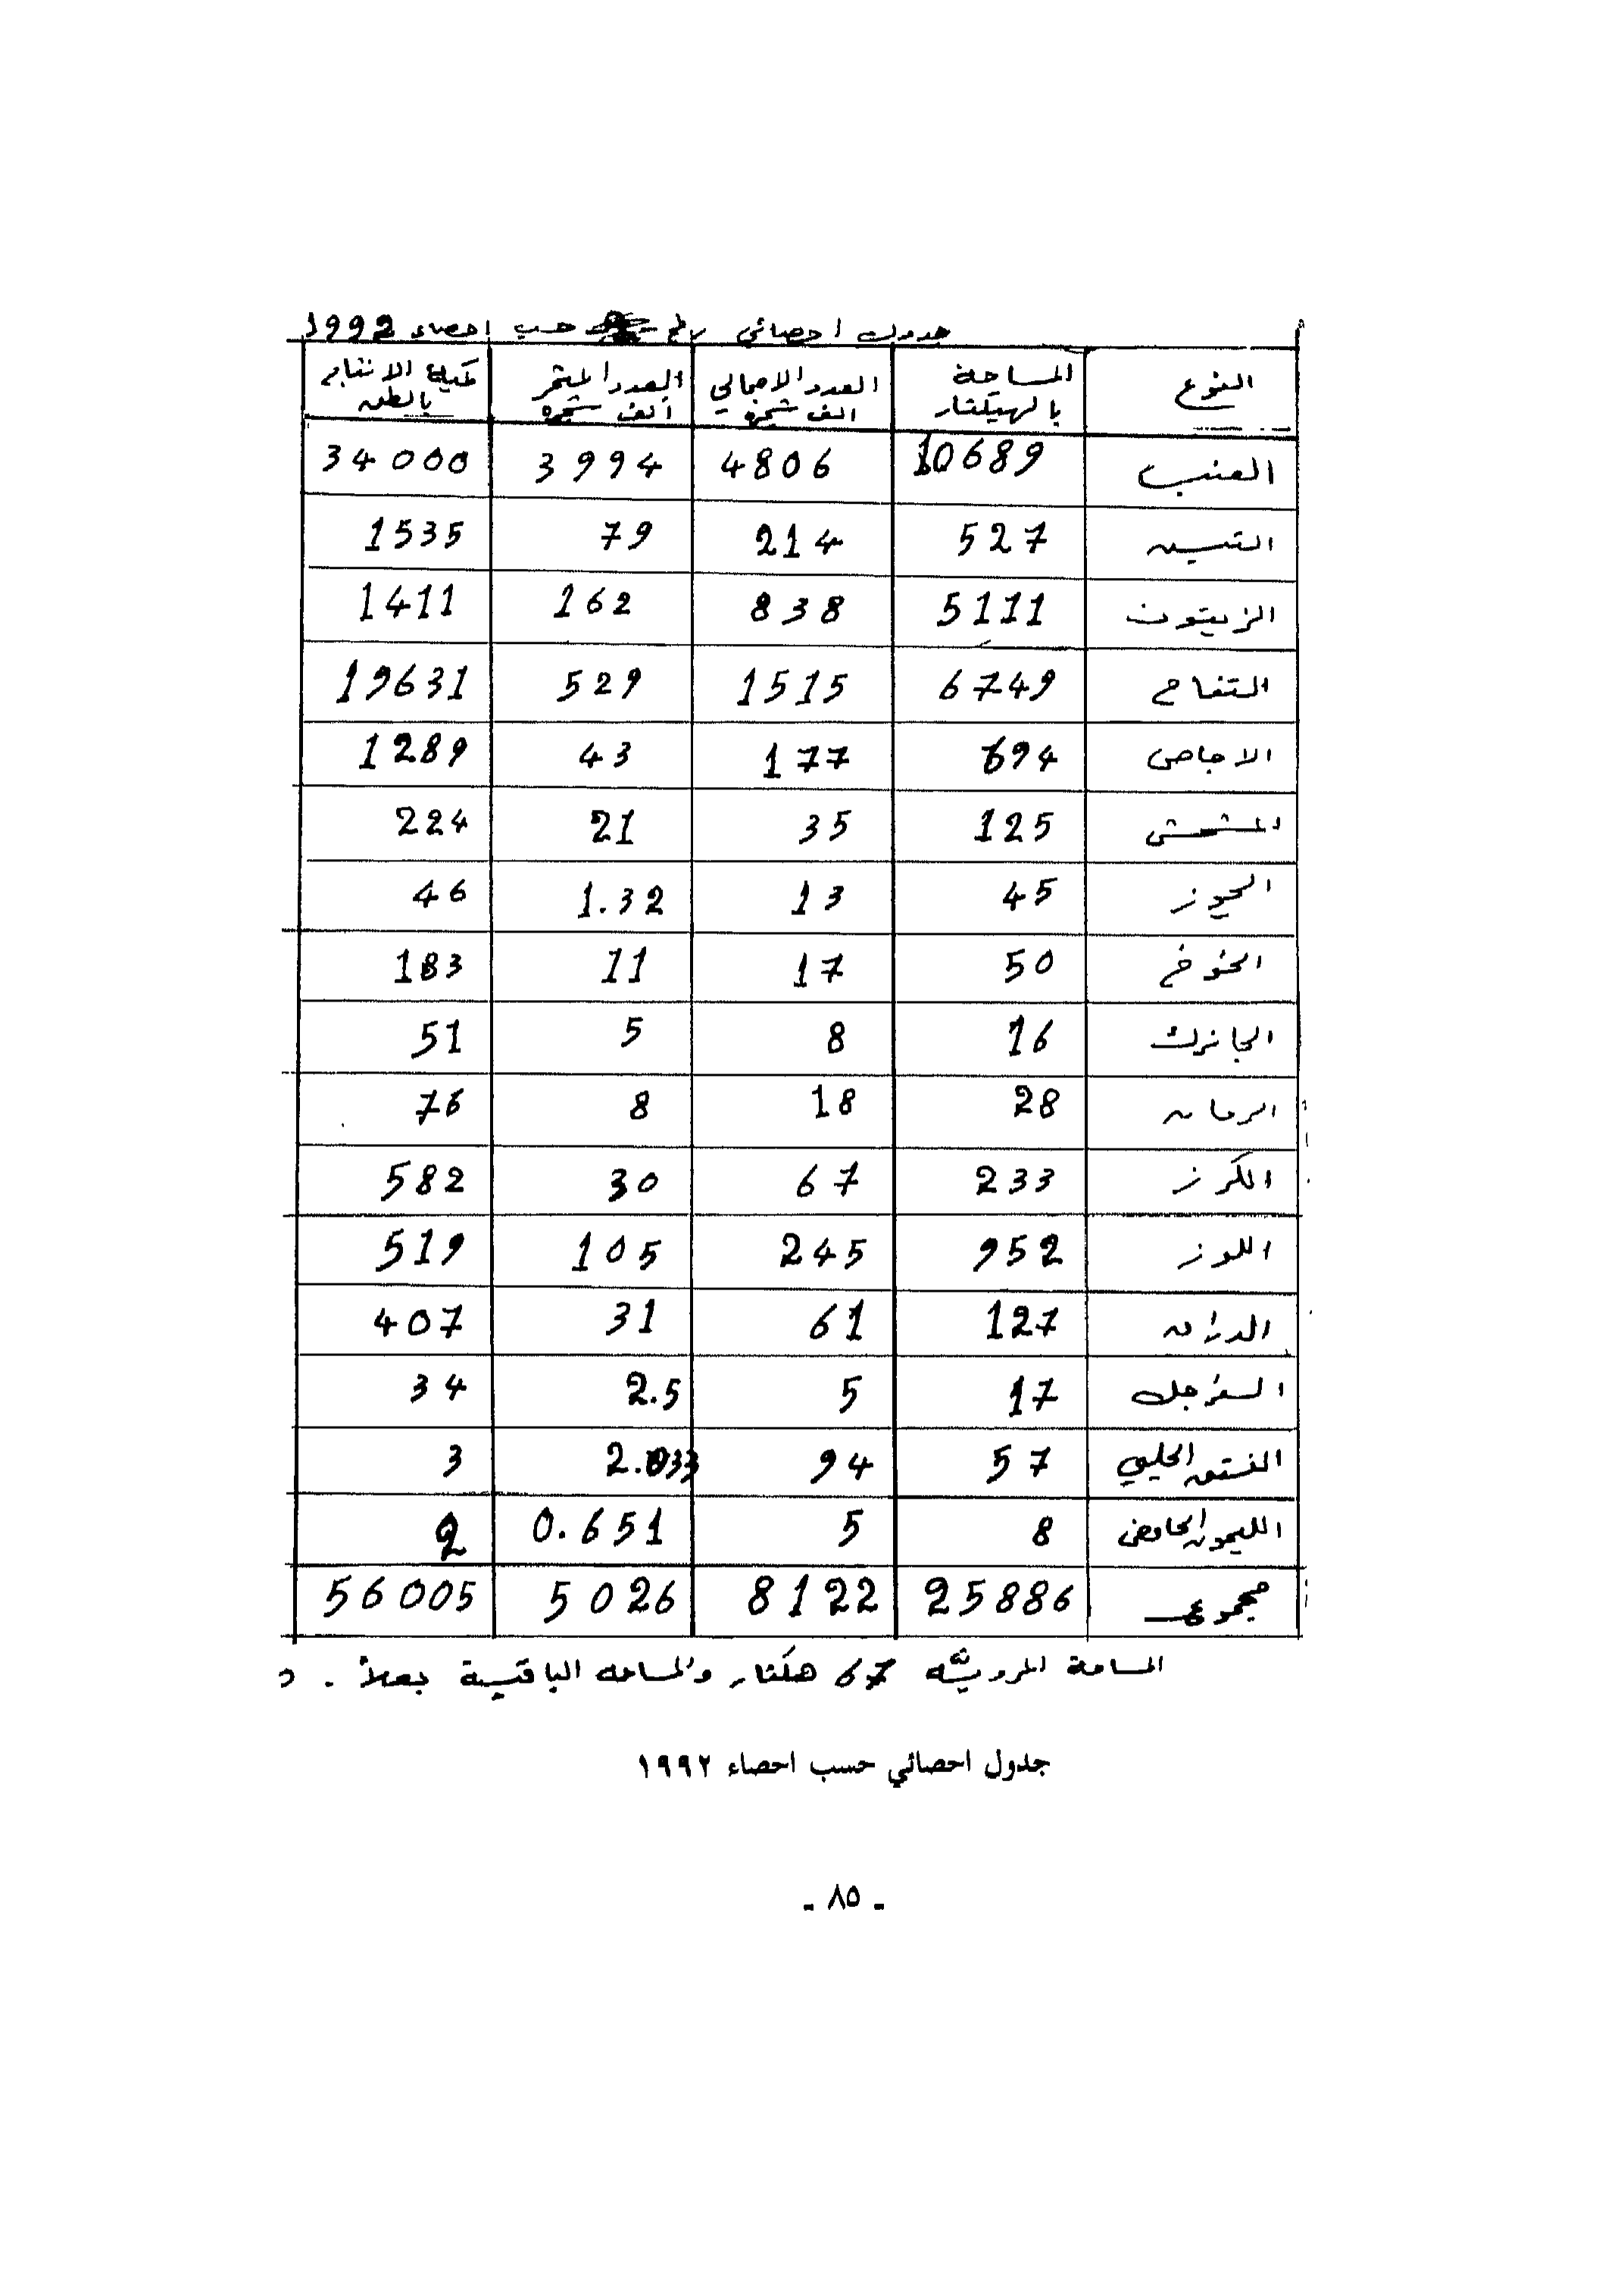 جدول احصائي رقم حسب احصاء 1992
النوع المساحة بالهيكتار العدد الاجمالي الف شجرة العدد المثمر الف شجرة كمية الانتاج بالطن
العنب 10689 4806 3994 34000
التين 527 214 79 1535
الزيتون 5111 838 162 1411
التفاح 6749 1515 529 19631
الاجاص 694 177 43 1289
المشمش 125 35 21 224
الجوز 45 13 1.32 46
الخوخ 50 17 11 183
الجانرك 16 8 5 51
الرمان 28 18 8 76
الكرز 233 67 30 582
اللوز 952 245 105 519
الدراق 127 61 31 407
السفرجل 17 5 2.5 34
الفستق الحلبي 57 94 2.033 3
الليمون الحامض 8 5 0.651 2
مجموع 25886 8122 5026 56005
المساحة المرويّة 67 هكتار والمساحه الباقية بعلاً .
جدول احصائي حسب احصاء ١٩٩٢
- ٨٥ -